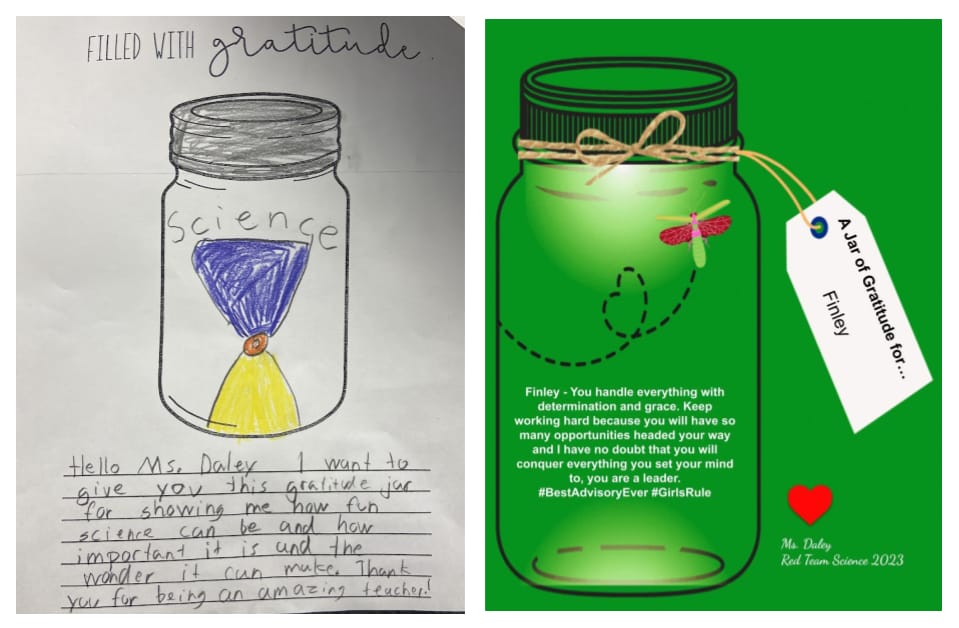 FILLED WITH gratitude.
science
Hello Ms. Daley I want to
give you this gratitude jar
for showing me how fun
science can be and how
important it is and the
wonder it can make. Thank
you for being an amazing teacher!
A Jar of Gratitude for...
Finley
Finley - You handle everything with
determination and grace. Keep
working hard because you will have so
many opportunities headed your way
and I have no doubt that you will
conquer everything you set your mind
to, you are a leader.
#BestAdvisoryEver #GirlsRule
Ms. Daley
Red Team Science 2023